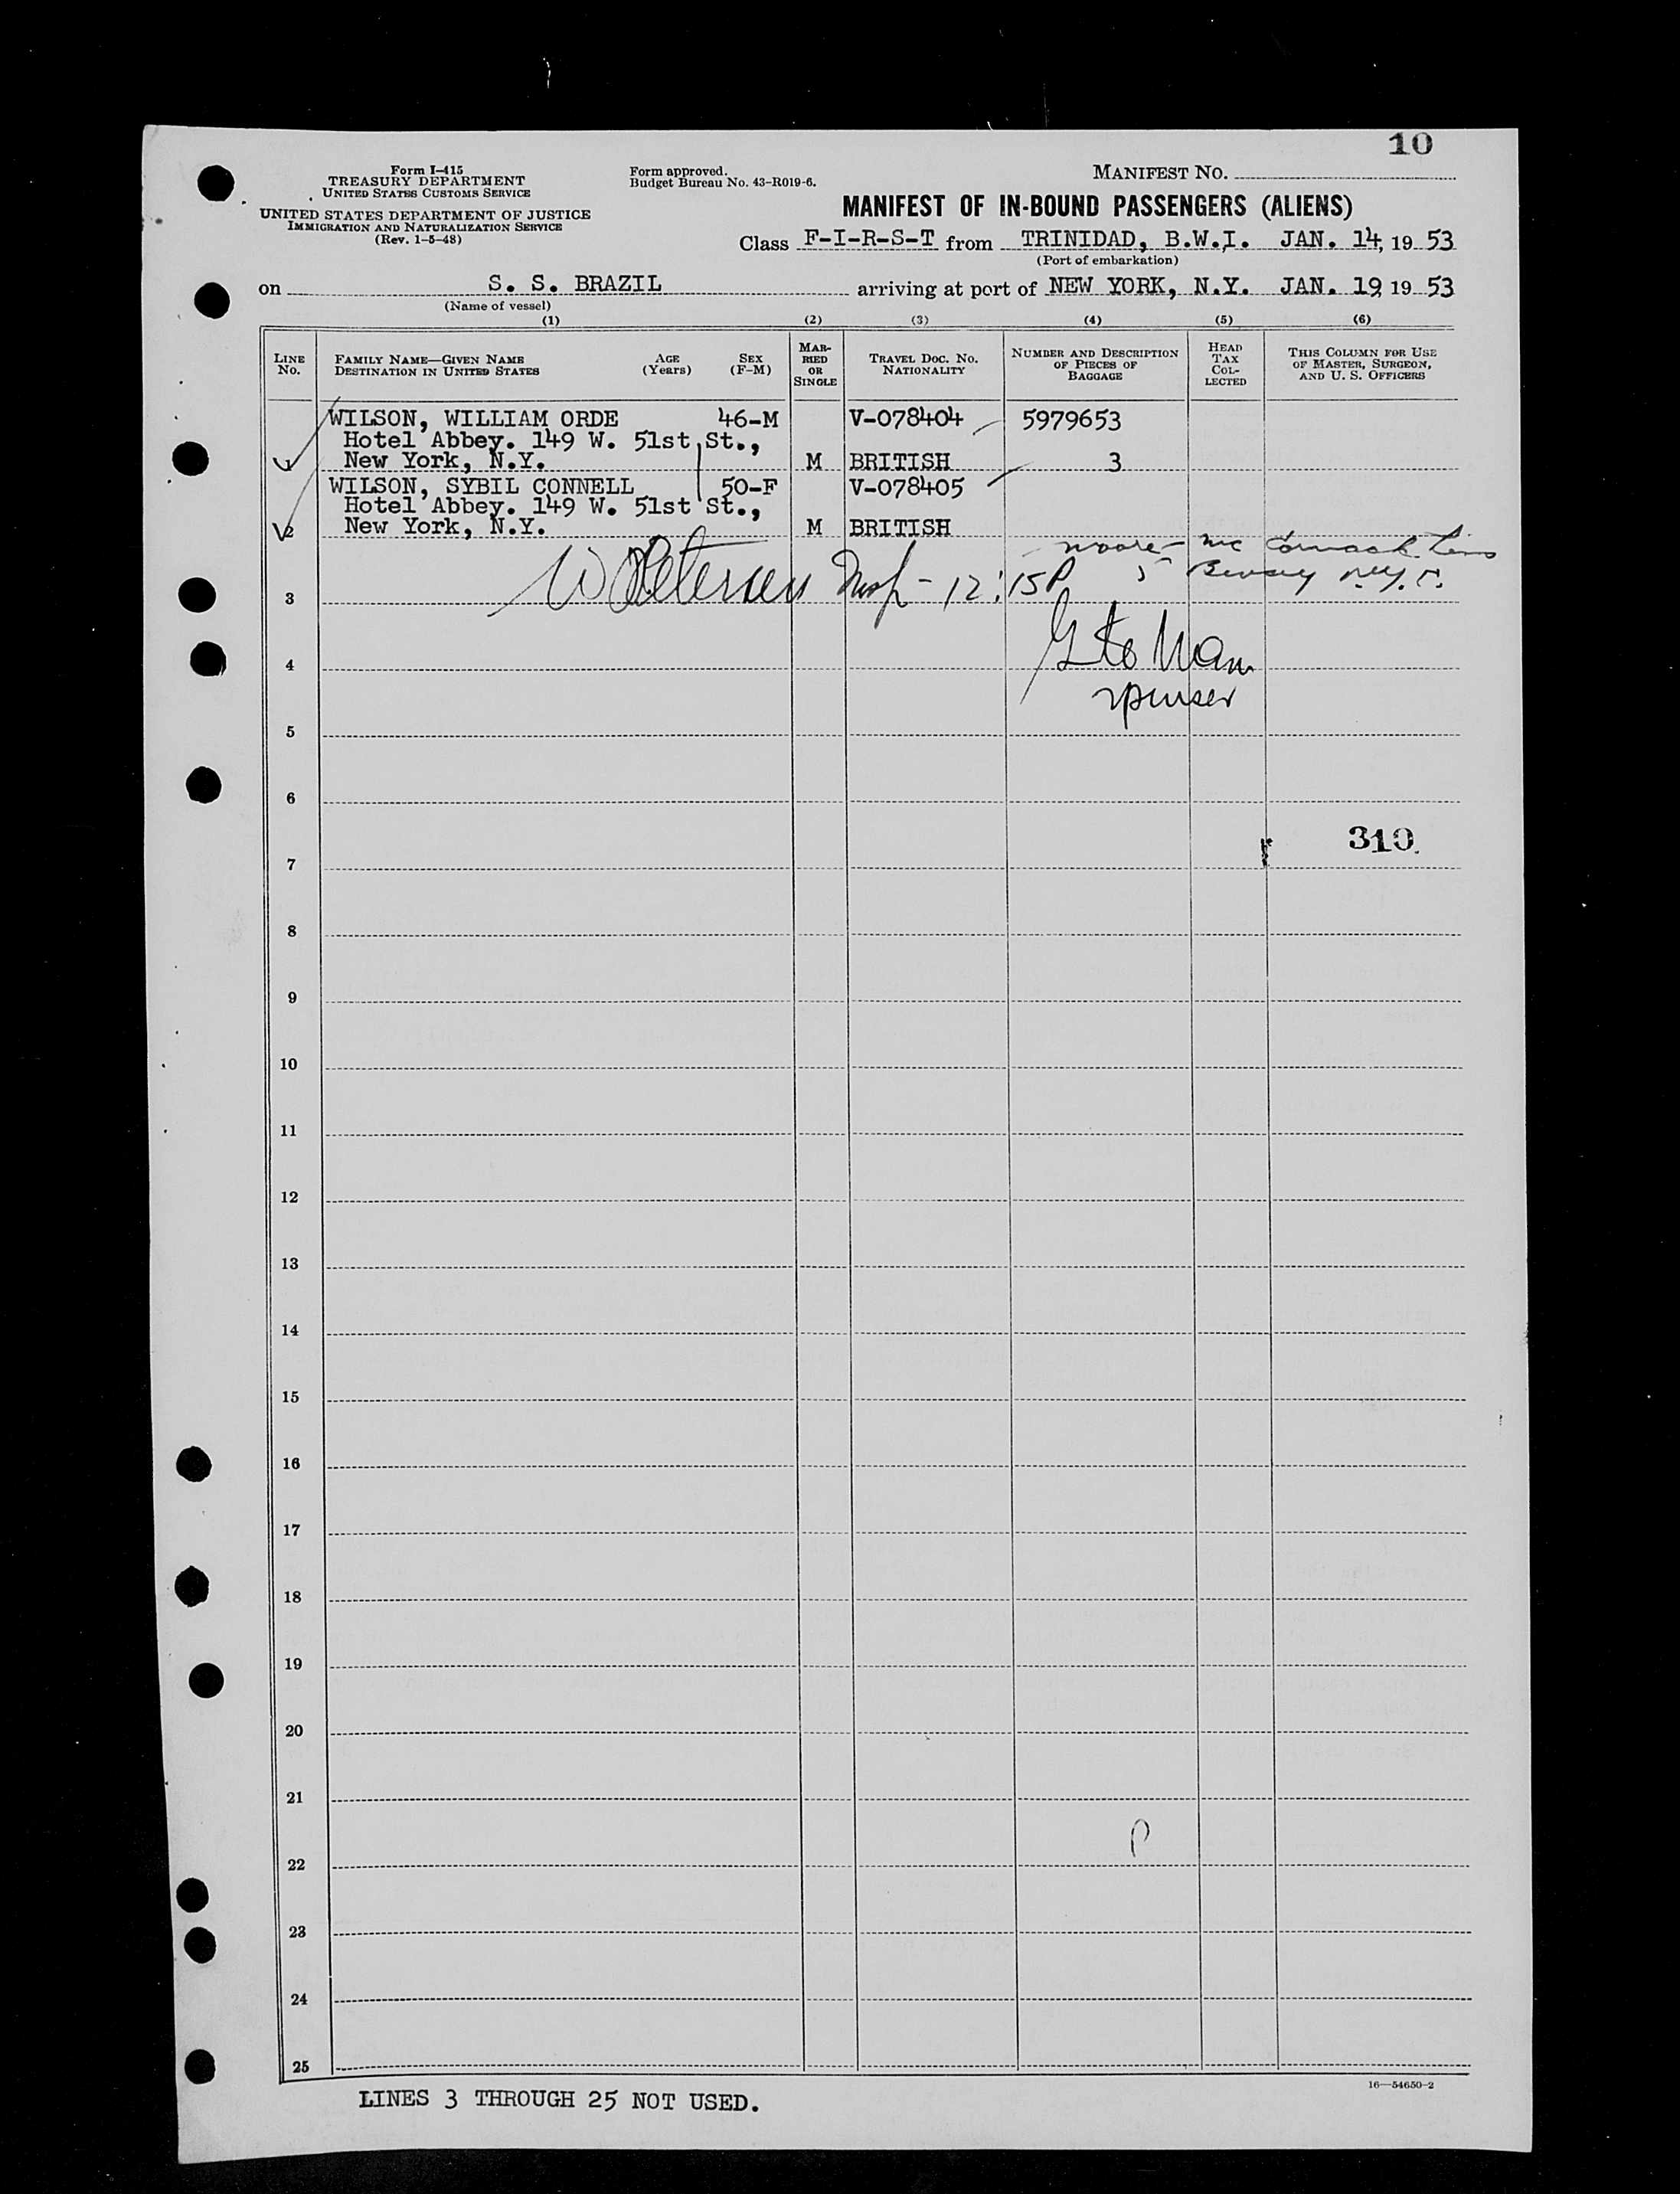 10
Form I-415
TREASURY DEPARTMENT
UNITED STATES CUSTOMS SERVICE
UNITED STATES DEPARTMENT OF JUSTICE
IMMIGRATION AND NATURALIZATION SERVICE
(Rev. 1-5-48)
Form approved.
Budget Bureau No. 43-R019-6.
MANIFEST NO.
MANIFEST OF IN-BOUND PASSENGERS (ALIENS)
Class F-I-R-S-T from TRINIDAD, B.W.I. JAN. 14, 19 53
(Port of embarkation)
on S. S. BRAZIL arriving at port of NEW YORK, N.Y. JAN. 19 19 53
(Name of vessel)
(1) (2) (3) (4) (5) (6)
LINE NO.
FAMILY NAME—GIVEN NAME
DESTINATION IN UNITED STATES
AGE (Years)
SEX (F-M)
MARRIED OR SINGLE
TRAVEL DOC. NO.
NATIONALITY
NUMBER AND DESCRIPTION
OF PIECES OF
BAGGAGE
HEAD
TAX
COL-
LECTED
THIS COLUMN FOR USE
OF MASTER, SURGEON,
AND U. S. OFFICERS
WILSON, WILLIAM ORDE 46-M V-078404 5979653
Hotel Abbey. 149 W. 51st St.,
1 New York, N.Y. M BRITISH 3
WILSON, SYBIL CONNELL 50-F V-078405
Hotel Abbey. 149 W. 51st St.,
2 New York, N.Y. M BRITISH
Moore-Mc Cormack Lines
5 N.Y.
Petersen Insp - 12:15P
3
4
purser
5
6
310
7
8
9
10
11
12
13
14
15
16
17
18
19
20
21
P
22
23
24
25
16—54650-2
LINES 3 THROUGH 25 NOT USED.